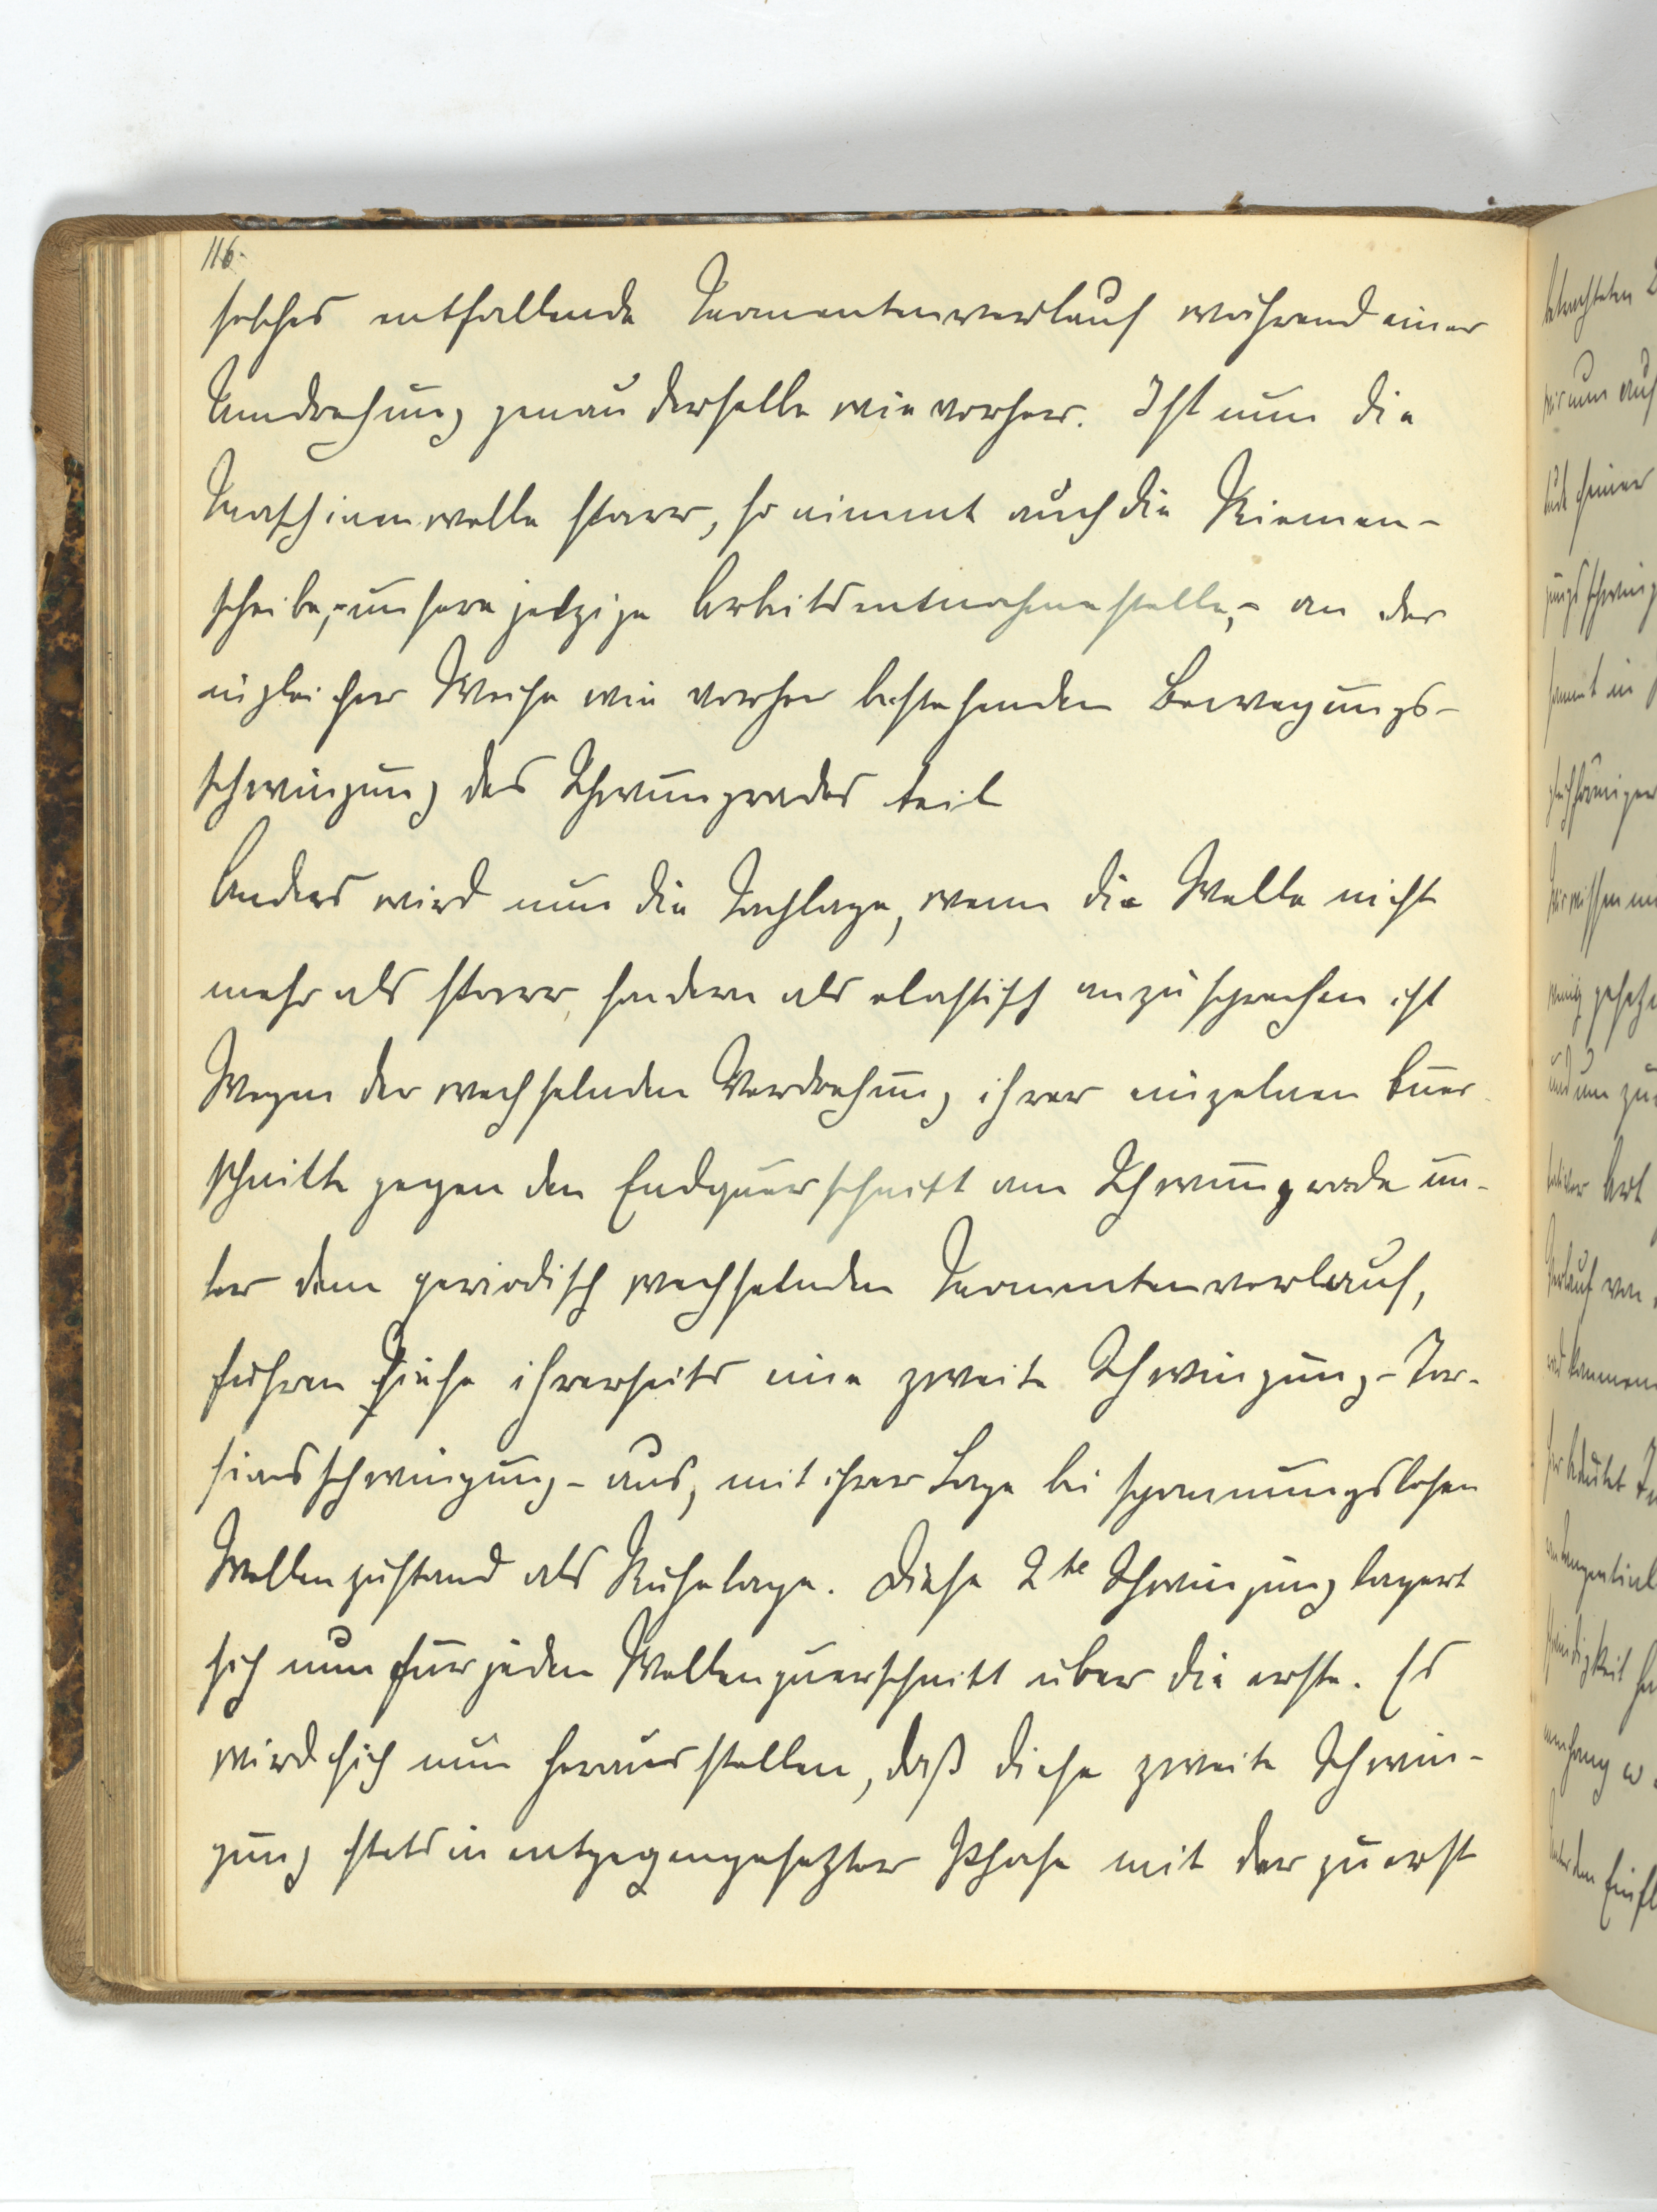 116.
solches entfallende Momentenverlauf während einer
Umdrehung genau derselbe wie vorher. Ist nun die
Maschinenwelle starr, so nimmt auch die Riemen-
scheibe, - unsere jetzige Arbeitsentnahmestelle, - an der
in gleicher Weise wie vorher bestehenden Bewegungs-
schwingung des Schwungrades teil
Anders wird nun die Sachlage, wenn die Welle nicht
mehr als starr, sondern als elastisch anzusprechen ist
Wegen der wechselnden Verdrehung ihrer einzelnen Quer
schnitte gegen den Endquerschnitt am Schwungrade un-
ter dem periodisch wechselnden Momentenverlauf,
führen diese ihrerseits eine zweite Schwingung - Tor-
sionsschwingung - aus, mit ihrer Lage bei spannungslosen
Wellenzustand als Ruhelage. Diese 2te Schwingung lagert
sich nun für jeden Wellenquerschnitt über die erste. Es
wird sich nun herausstellen, daß diese zweite Schwin-
gung stets in entgegengesetzter Phase mit der zuerst
betrachteten
wir nun auf
gesetz
Art
Verlauf von